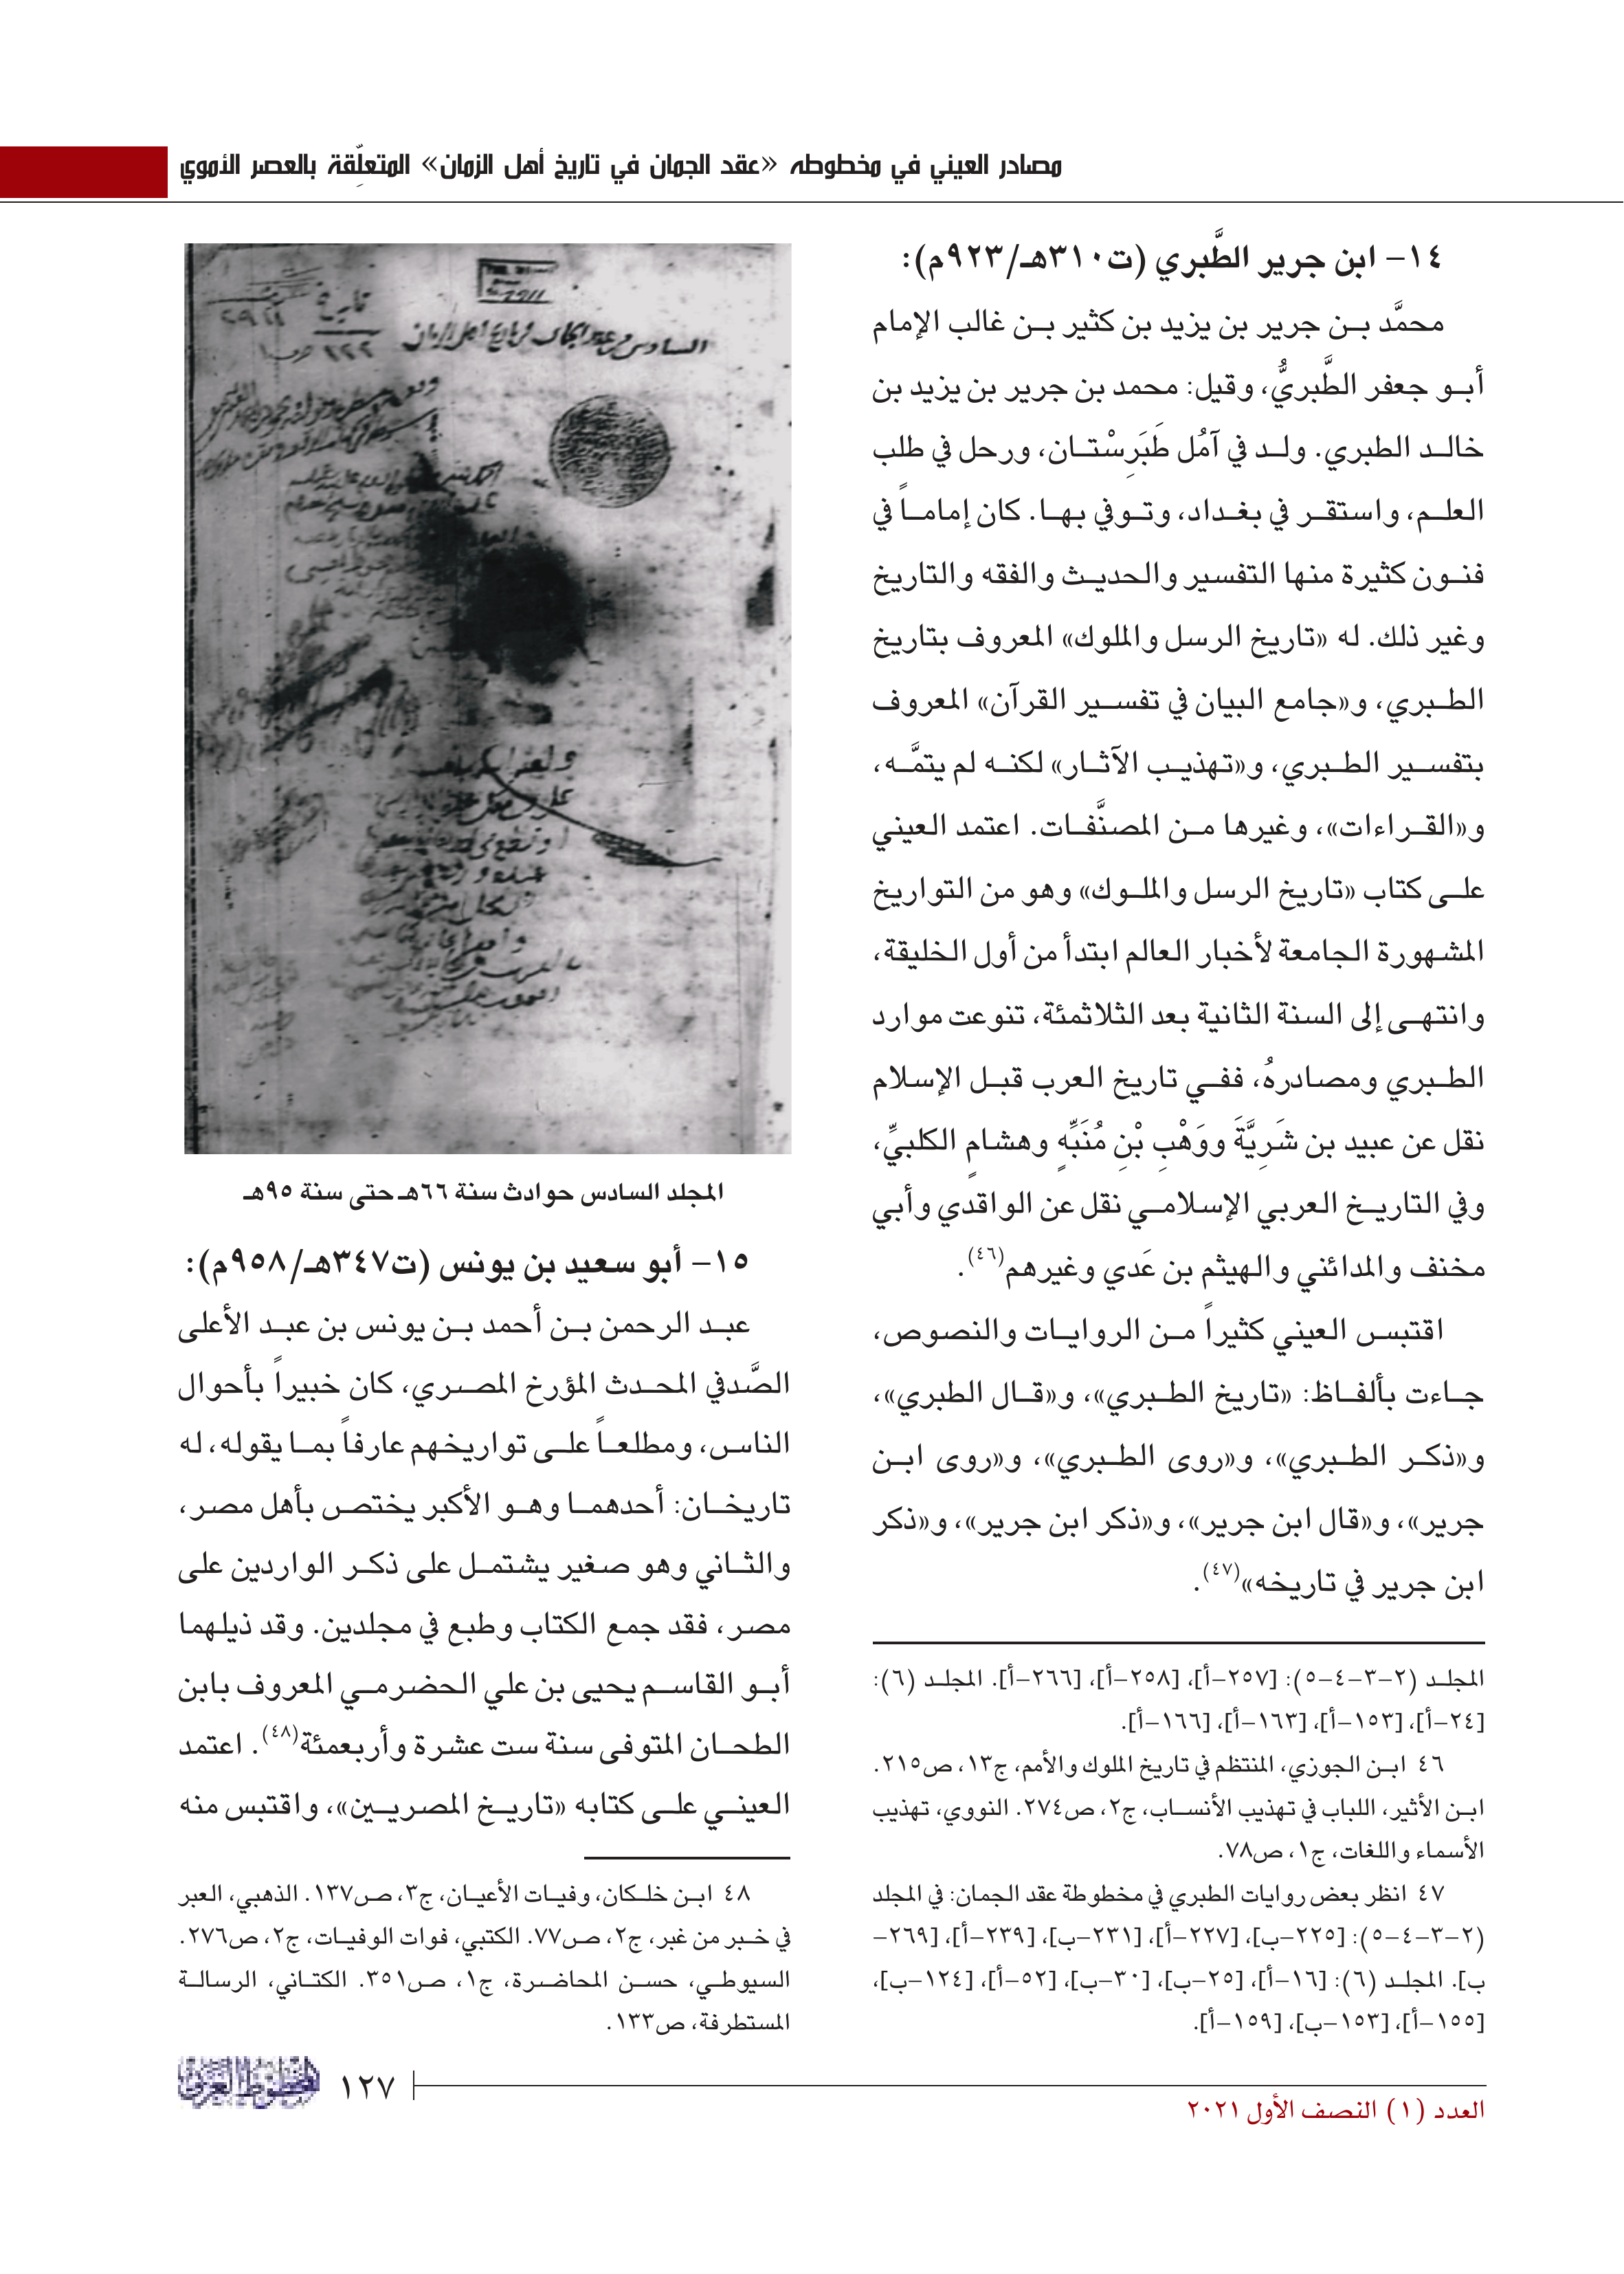 مصادر العيني في مخطوطه «عقد الجمان في تاريخ أهل الزمان» المتعلِّقة بالعصر الأموي
١٤- ابن جرير الطَّبري (ت٣١٠هـ/٩٢٣م):
محمَّد بن جرير بن يزيد بن كثير بن غالب الإمام
أبو جعفر الطَّبريُّ، وقيل: محمد بن جرير بن يزيد بن
خالد الطبري. ولد في آمُل طَبَرِسْتان، ورحل في طلب
العلم، واستقر في بغداد، وتوفي بها. كان إماماً في
فنون كثيرة منها التفسير والحديث والفقه والتاريخ
وغير ذلك. له «تاريخ الرسل والملوك» المعروف بتاريخ
الطبري، و«جامع البيان في تفسير القرآن» المعروف
بتفسير الطبري، و«تهذيب الآثار» لكنه لم يتمَّه،
و«القراءات»، وغيرها من المصنَّفات. اعتمد العيني
على كتاب «تاريخ الرسل والملوك» وهو من التواريخ
المشهورة الجامعة لأخبار العالم ابتدأ من أول الخليقة،
وانتهى إلى السنة الثانية بعد الثلاثمئة، تنوعت موارد
الطبري ومصادرهُ، ففي تاريخ العرب قبل الإسلام
نقل عن عبيد بن شَرِيَّةَ ووَهْبِ بْنِ مُنَبِّهٍ وهشامٍ الكلبيِّ،
وفي التاريخ العربي الإسلامي نقل عن الواقدي وأبي
مخنف والمدائني والهيثم بن عَدي وغيرهم(٤٦).
اقتبس العيني كثيراً من الروايات والنصوص،
جاءت بألفاظ: «تاريخ الطبري»، و«قال الطبري»،
و«ذكر الطبري»، و«روى الطبري»، و«روى ابن
جرير»، و«قال ابن جرير»، و«ذكر ابن جرير»، و«ذكر
ابن جرير في تاريخه»(٤٧).
المجلد (٢-٣-٤-٥): [٢٥٧-أ]، [٢٥٨-أ]، [٢٦٦-أ]. المجلد (٦):
[٢٤-أ]، [١٥٣-أ]، [١٦٣-أ]، [١٦٦-أ].
٤٦ ابن الجوزي، المنتظم في تاريخ الملوك والأمم، ج١٣، ص٢١٥.
ابن الأثير، اللباب في تهذيب الأنساب، ج٢، ص٢٧٤. النووي، تهذيب
الأسماء واللغات، ج١، ص٧٨.
٤٧ انظر بعض روايات الطبري في مخطوطة عقد الجمان: في المجلد
(٢-٣-٤-٥): [٢٢٥-ب]، [٢٢٧-أ]، [٢٣١-ب]، [٢٣٩-أ]، [٢٦٩-
ب]. المجلد (٦): [١٦-أ]، [٢٥-ب]، [٣٠-ب]، [٥٢-أ]، [١٢٤-ب]،
[١٥٥-أ]، [١٥٣-ب]، [١٥٩-أ].
السادس من عقد الجمان في تاريخ اهل الزمان
تاريخ
المجلد السادس حوادث سنة ٦٦هـ حتى سنة ٩٥هـ
١٥- أبو سعيد بن يونس (ت٣٤٧هـ/٩٥٨م):
عبد الرحمن بن أحمد بن يونس بن عبد الأعلى
الصَّدفي المحدث المؤرخ المصري، كان خبيراً بأحوال
الناس، ومطلعاً على تواريخهم عارفاً بما يقوله، له
تاريخان: أحدهما وهو الأكبر يختص بأهل مصر،
والثاني وهو صغير يشتمل على ذكر الواردين على
مصر، فقد جمع الكتاب وطبع في مجلدين. وقد ذيلهما
أبو القاسم يحيى بن علي الحضرمي المعروف بابن
الطحان المتوفى سنة ست عشرة وأربعمئة(٤٨). اعتمد
العيني على كتابه «تاريخ المصريين»، واقتبس منه
٤٨ ابن خلكان، وفيات الأعيان، ج٣، ص١٣٧. الذهبي، العبر
في خبر من غبر، ج٢، ص٧٧. الكتبي، فوات الوفيات، ج٢، ص٢٧٦.
السيوطي، حسن المحاضرة، ج١، ص٣٥١. الكتاني، الرسالة
المستطرفة، ص١٣٣.
العدد (١) النصف الأول ٢٠٢١
١٢٧
المخطوط العربي